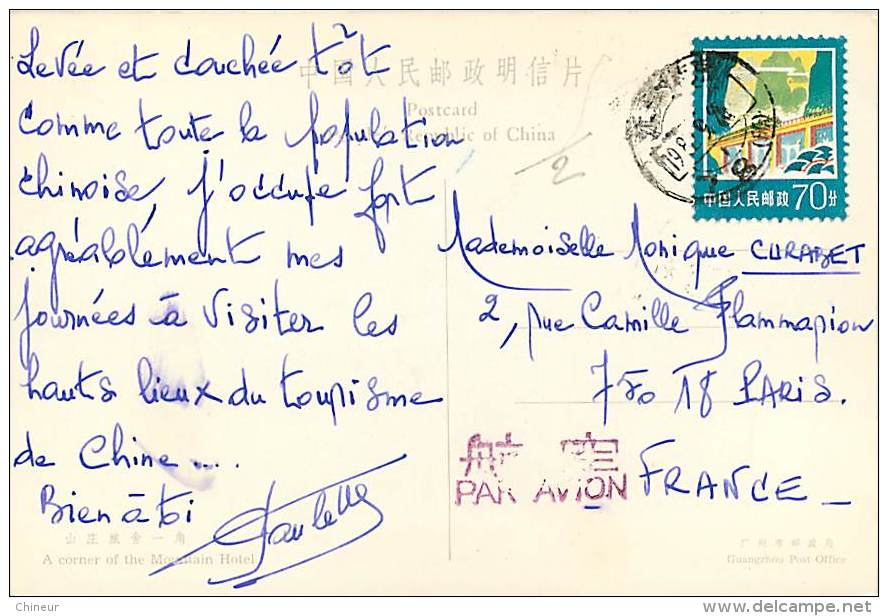 Levée et couchée tôt
comme toute la population
chinoise, j'occupe fort
agréablement mes
journées à visiter les
hauts lieux du tourisme
de Chine....
Bien à toi
Paulette
山庄旅舍一角
A corner of the Mountain Hotel
中国人民邮政明信片
Postcard
Republic of China
1/2
中国人民邮政 70分
Mademoiselle Monique CURABET
2, rue Camille Flammarion
75018 PARIS.
FRANCE
航空
PAR AVION
广州市邮政局
Guangzhou Post Office
Chineur
delcampe.net